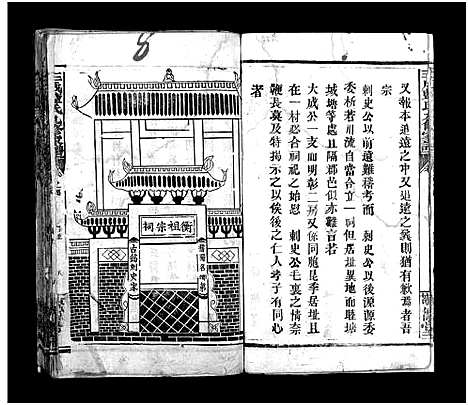 又報本追遠之中又追遠之義則猶有歉焉者吾
宗
刺史公以前遠難稽考而 刺史公以後源源委
委析若川流自當合立一祠但居址異地而聯塘
城塘等處且隔郡邑似亦難言若
大成公一支而明彰二房又係同胞是季居址且
在一村必合祠祀之始慰 刺史公毛裏之情奈
鞭長莫及特揭示之以俟後之仁人孝子有同心
者
衡祖宗祠
8